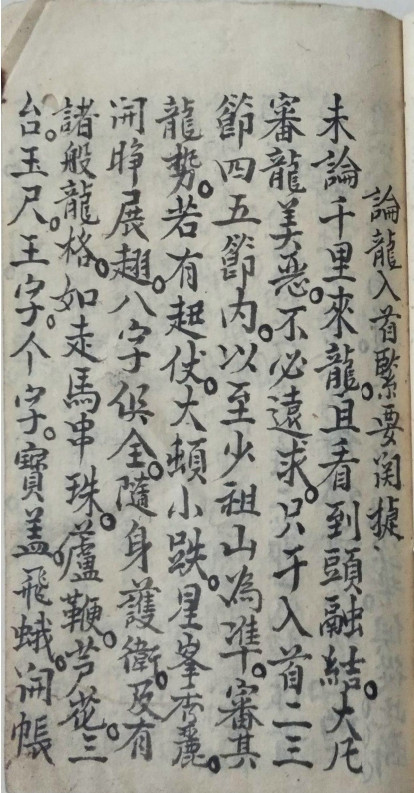 論龍入首緊要関捷
未論千里來龍。且看到頭融結。大凡
審龍美惡。不必遠求。只于入首二三
節四五節内。以至少祖山為準。審其
龍勢。若有起伏。大頓小跌。星峯秀麗。
開睁展翅。八字俱全。隨身護衛。及有
諸般龍格。如走馬串珠。蘆鞭。芦花。三
台。玉尺。王字。个字。寶盖。飛蛾。開帳